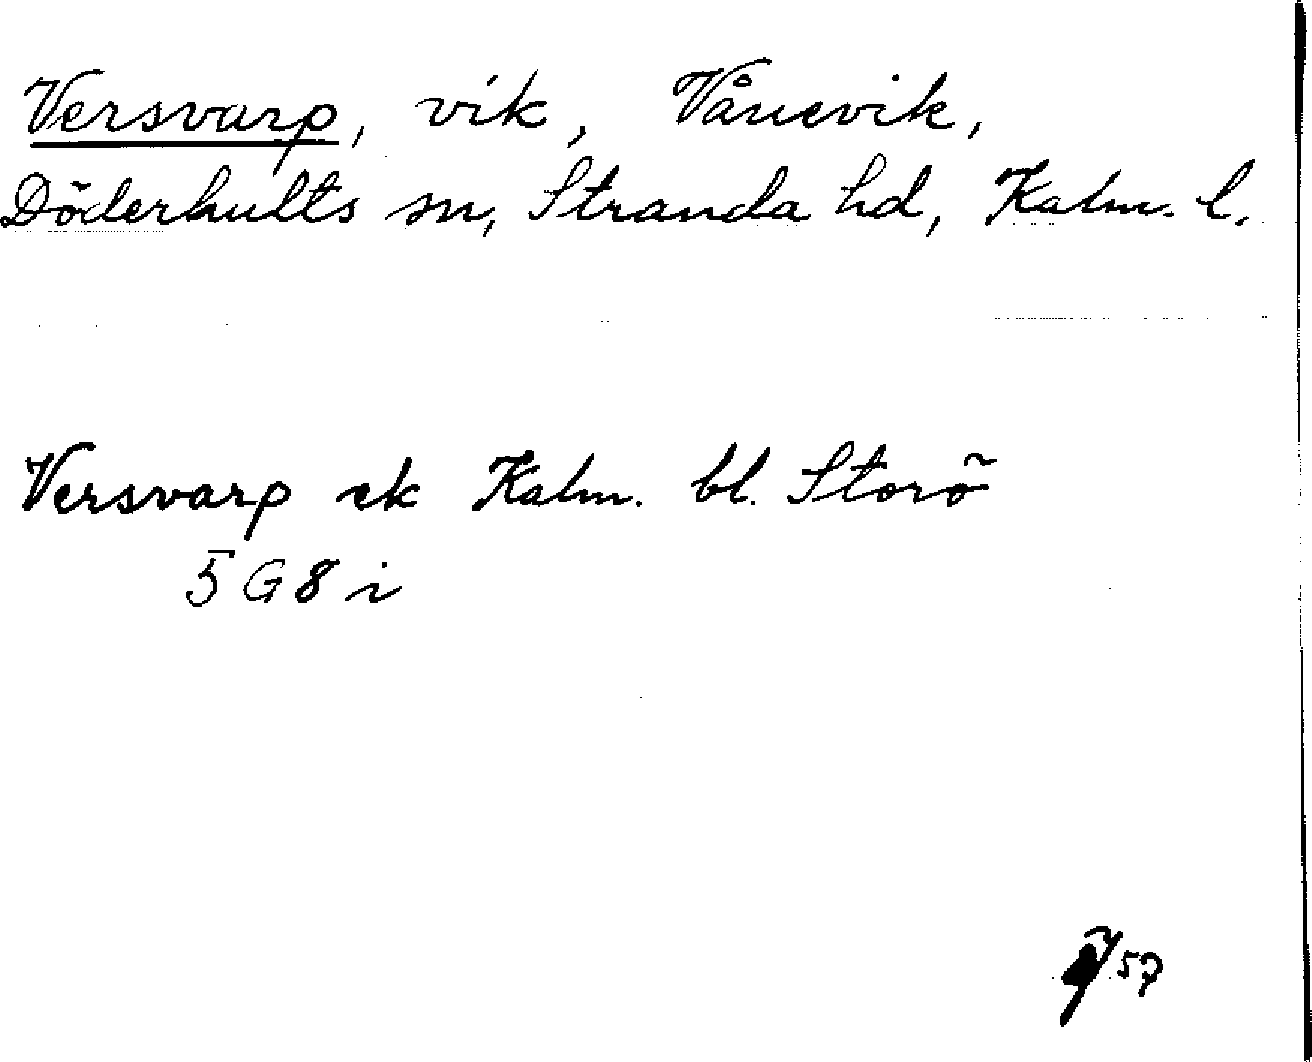 Versvarp, vik, Vånevik,
Döderhults sn, Stranda hd, Kalm. l.
Versvarp ek Kalm. bl. Storö
5 G 8 i